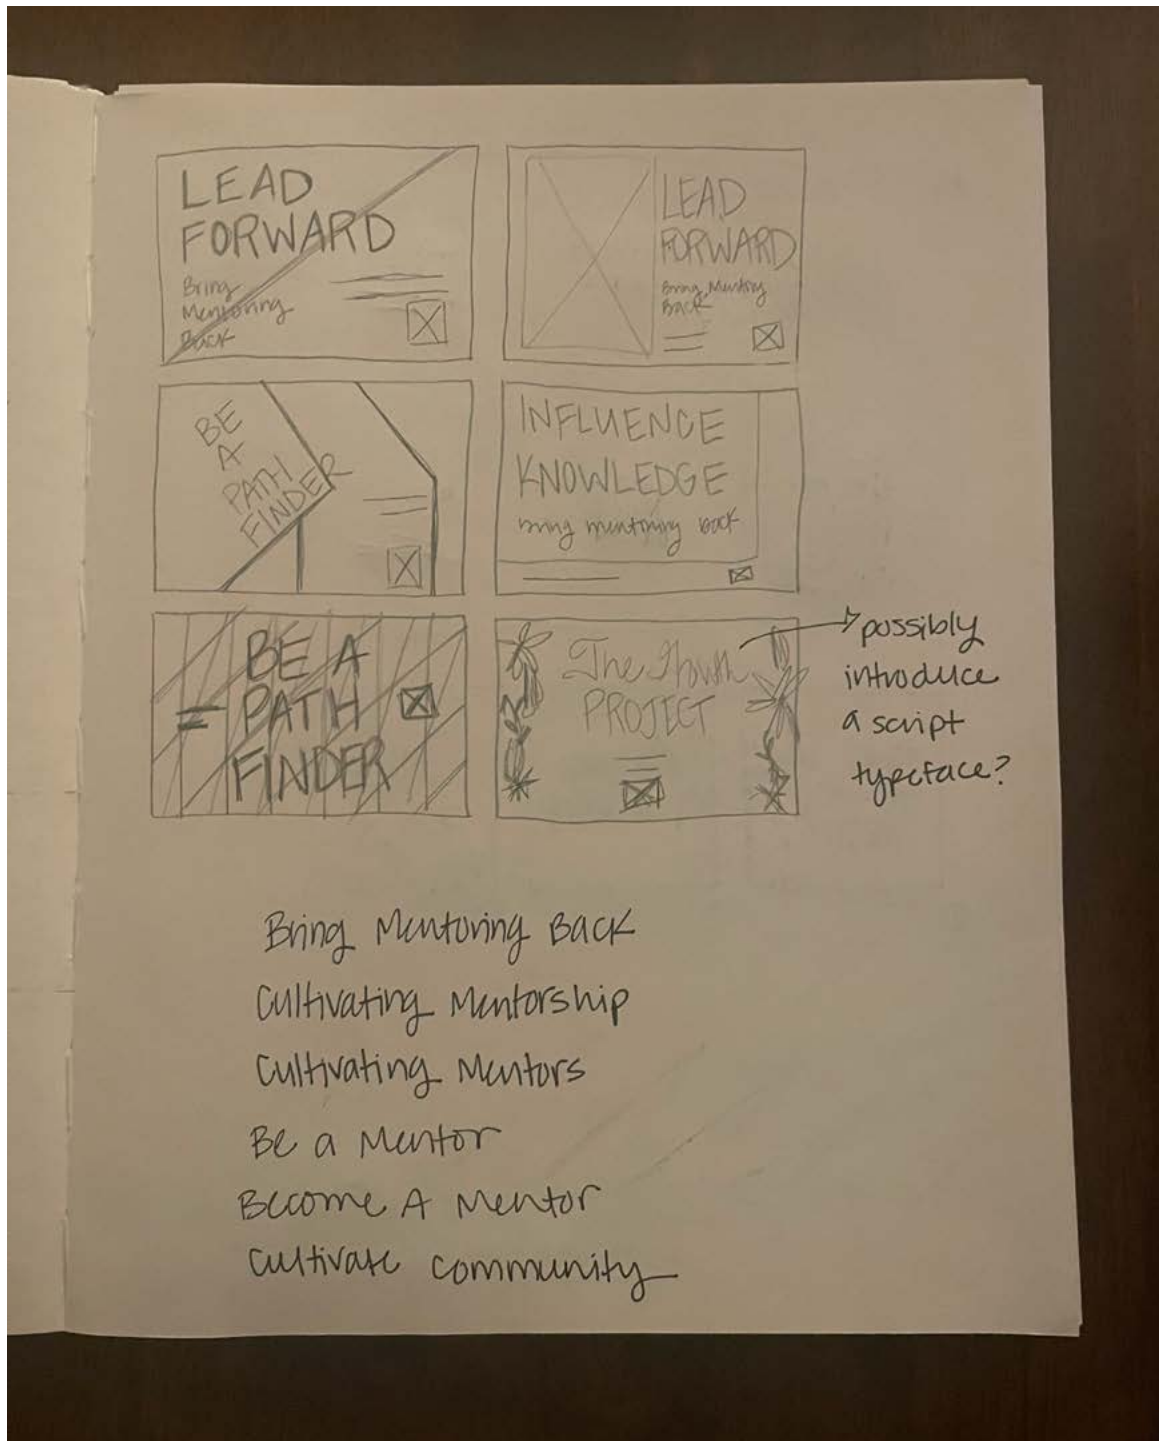 LEAD
FORWARD
Bring
Mentoring
Back
LEAD
FORWARD
Bring Mentoring
Back
BE
A
PATH
FINDER
INFLUENCE
KNOWLEDGE
bring mentoring back
BE A
PATH
FINDER
The Growth
PROJECT
possibly
introduce
a script
typeface?
Bring Mentoring Back
Cultivating Mentorship
Cultivating Mentors
Be a Mentor
Become A Mentor
Cultivate community